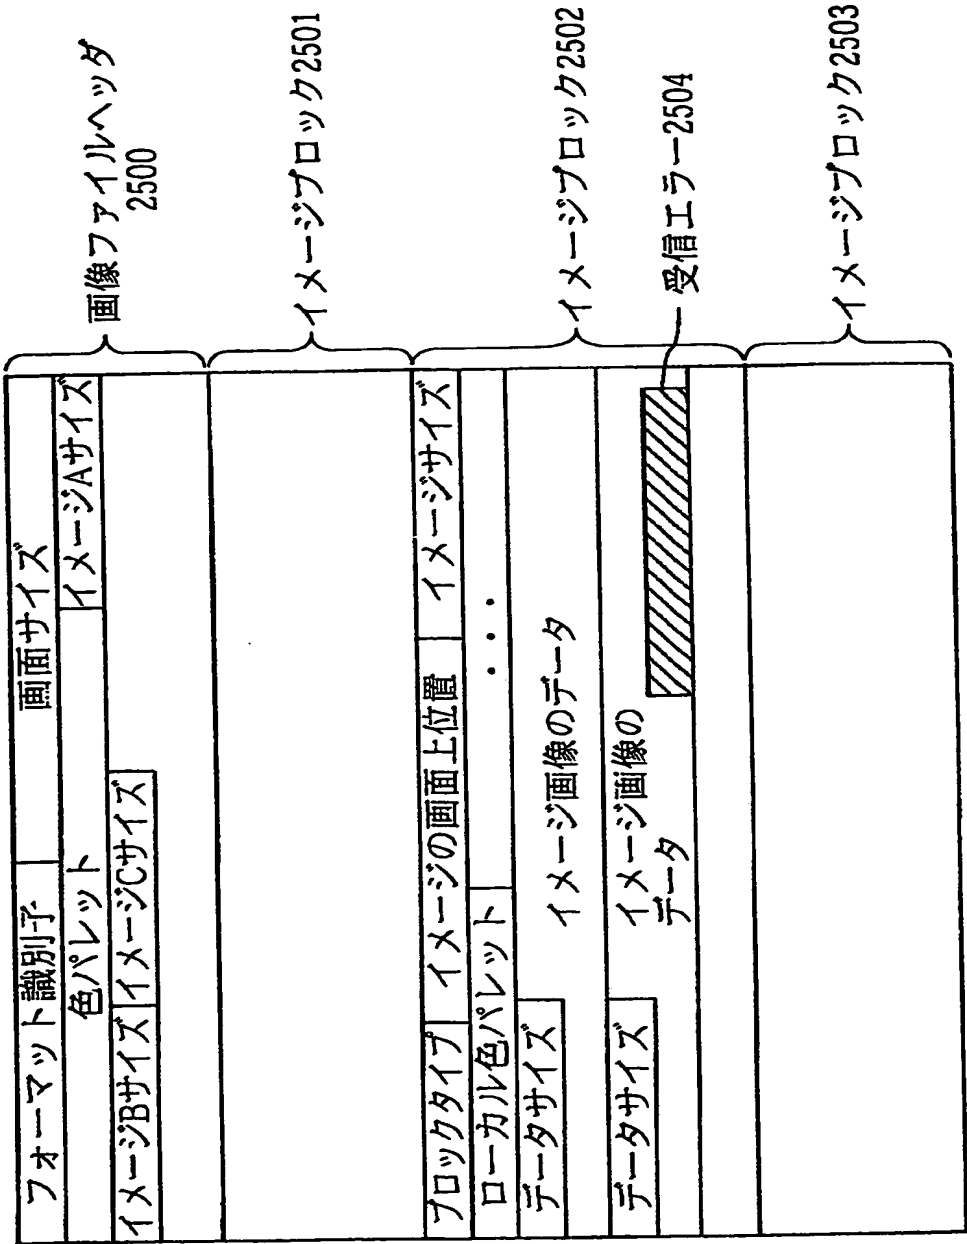 フォーマット識別子
画面サイズ
色パレット
イメージAサイズ
イメージBサイズ
イメージCサイズ
画像ファイルヘッダ
2500
イメージブロック2501
ブロックタイプ
イメージの画面上位置
イメージサイズ
ローカル色パレット
・・・
データサイズ
イメージ画像のデータ
データサイズ
イメージ画像の
データ
イメージブロック2502
受信エラー2504
イメージブロック2503